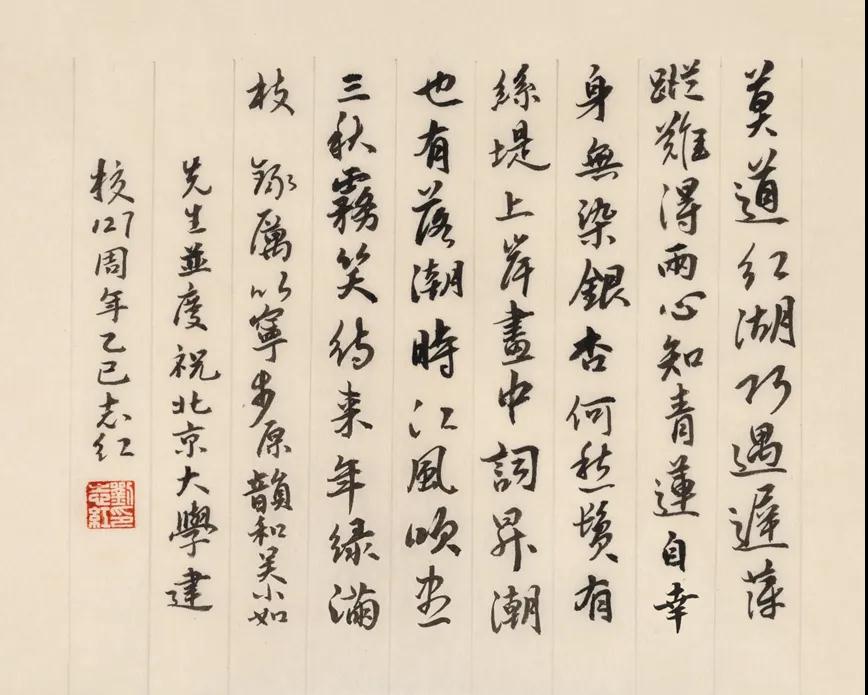 莫道红湖巧遇遲萍
蹤難得兩心知青蓮自幸
身無染銀杏何愁鬢有
絲堤上岸畫中詞昇潮
也有落潮時江風吹尽
三秋霧笑待来年绿滿
枝 錄厲以寧步原韻和吴小如
先生並慶祝北京大學建
校127周年乙巳志红
劉志紅印